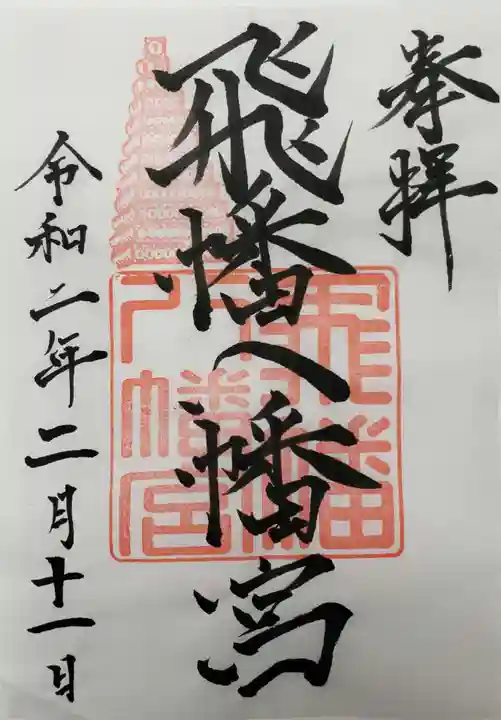 奉拝
飛幡八幡宮
令和二年二月十一日
飛幡
八幡宮